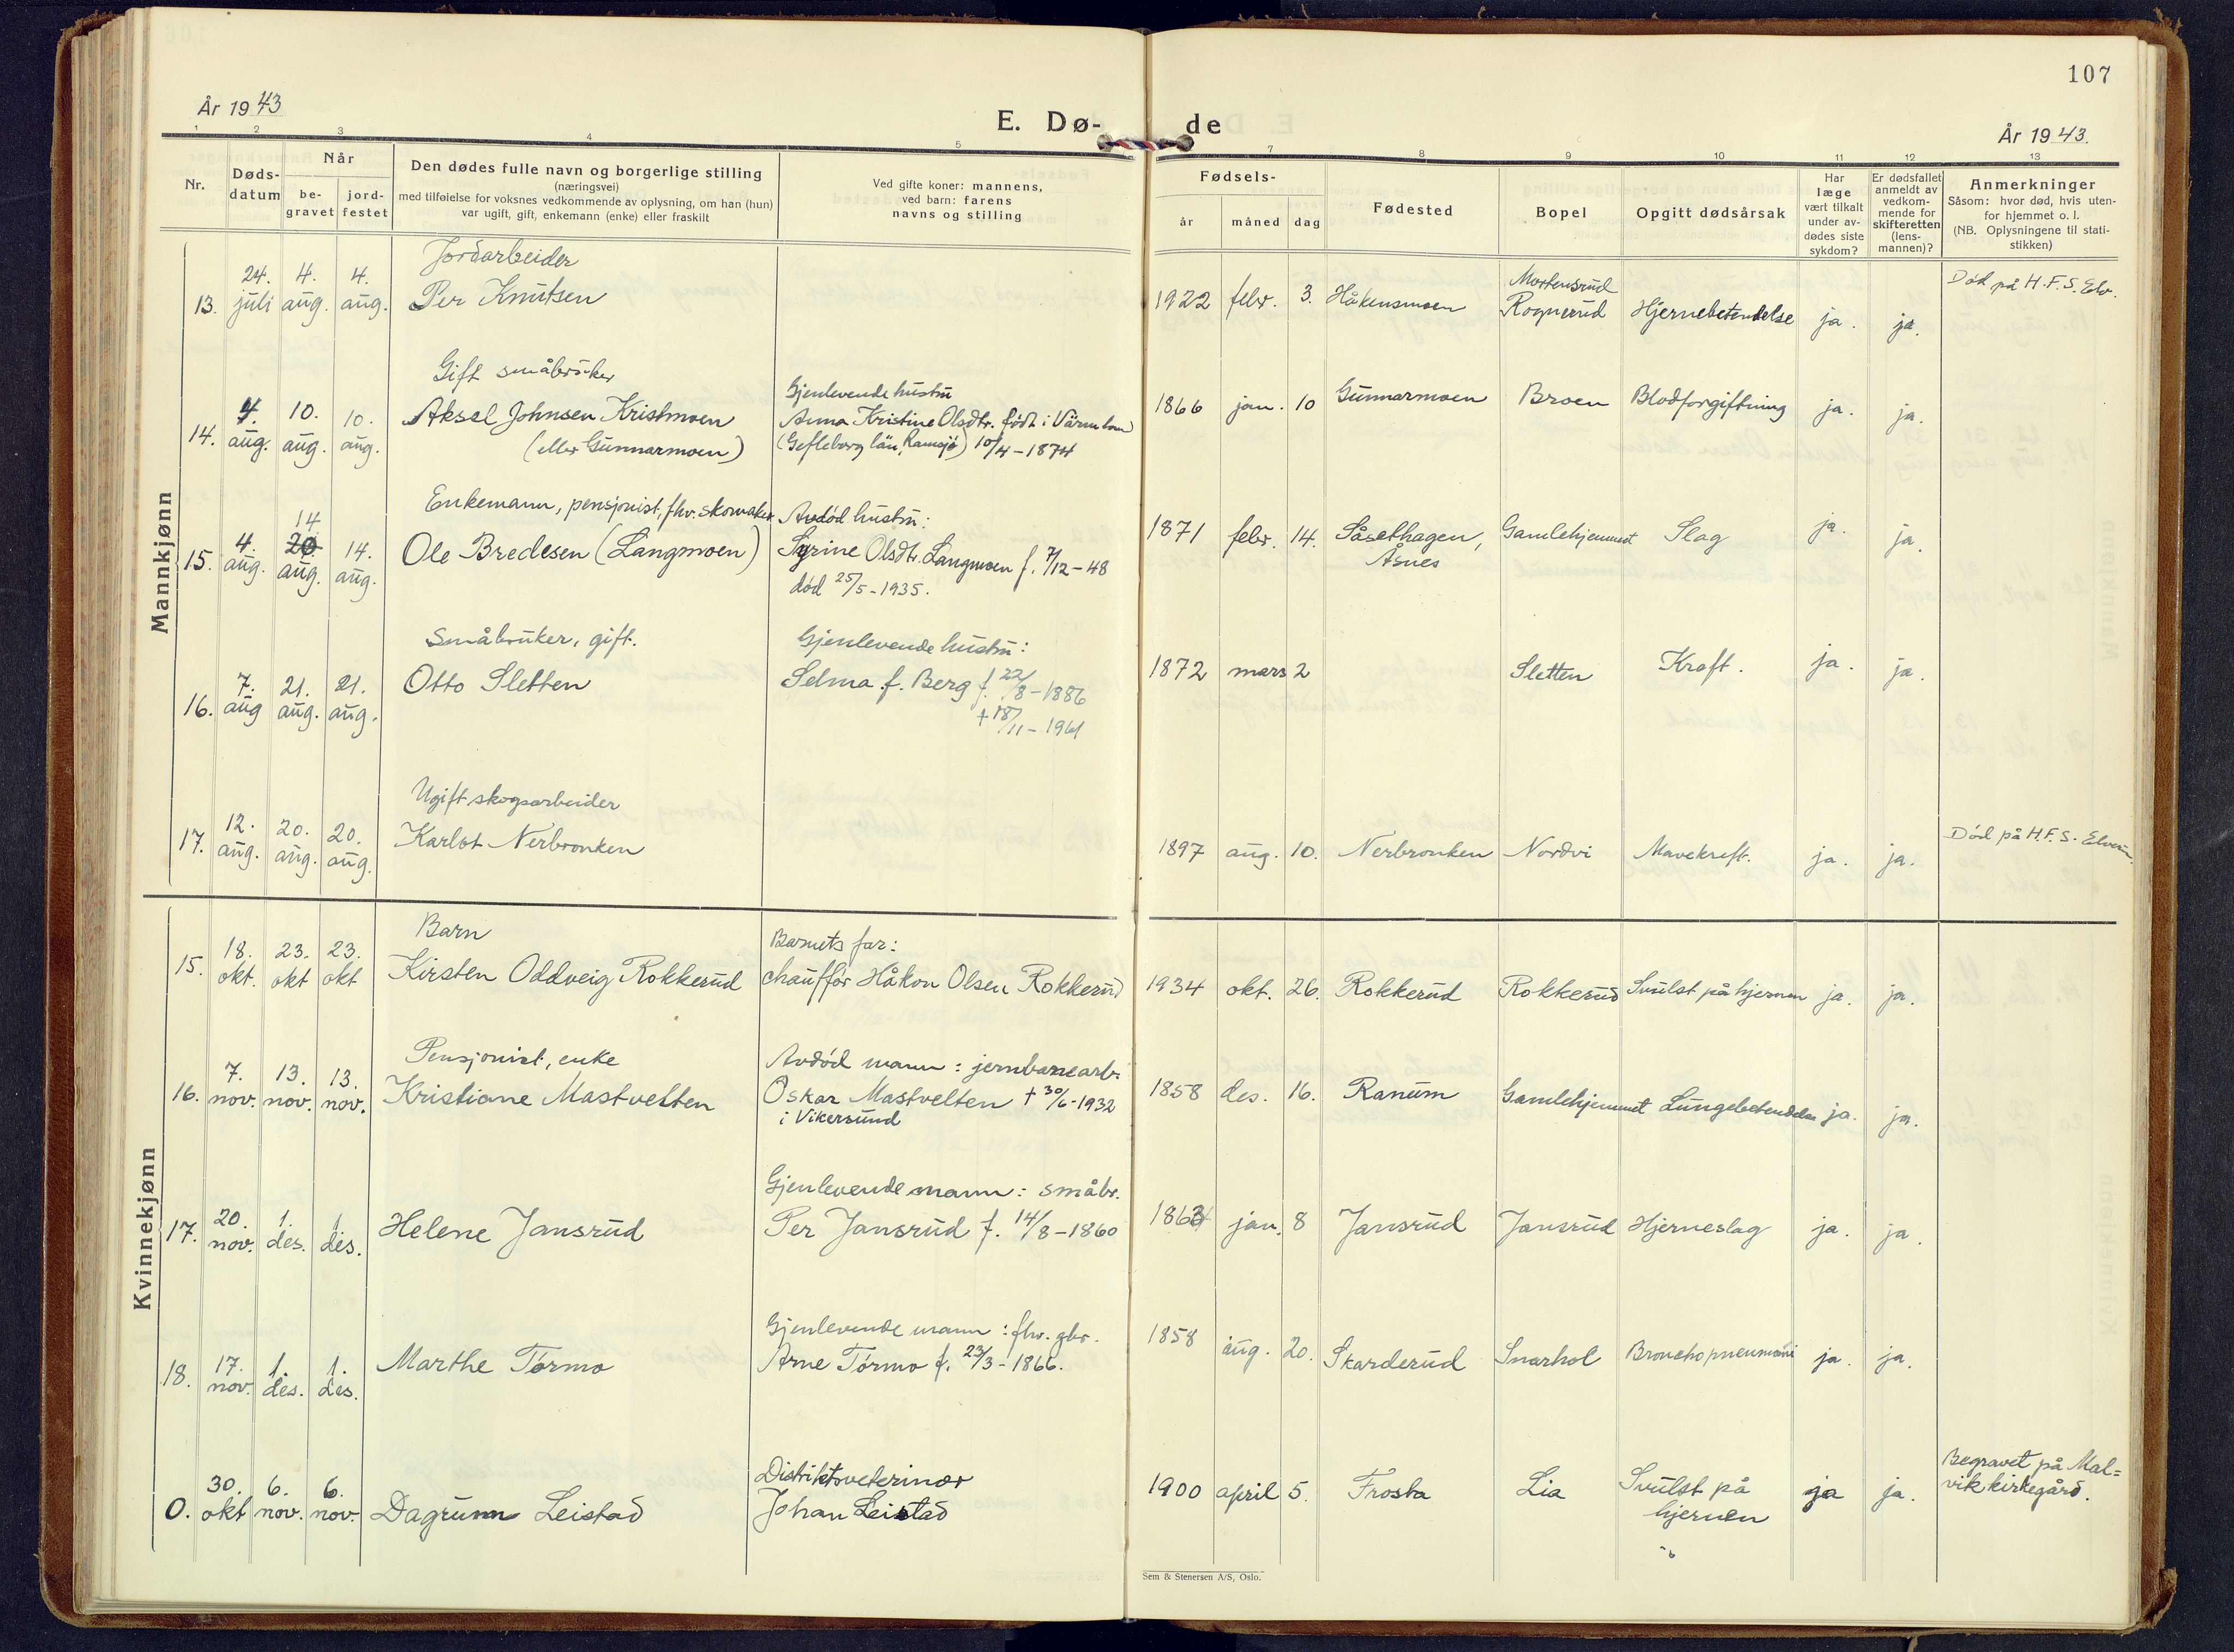 107
År 1943
E. Dø-
de
År 1943.
1 2 3 4 5 7 8 9 10 11 12 13
Nr.
Døds-
datum
Når
be-
gravet
jord-
festet
Den dødes fulle navn og borgerlige stilling
(næringsvei)
med tilføielse for voksnes vedkommende av oplysning, om han (hun)
var ugift, gift, enkemann (enke) eller fraskilt
Ved gifte koner: mannens,
ved barn: farens
navns og stilling
Fødsels-
år måned dag
Fødested
Bopel
Opgitt dødsårsak
Har
læge
vært tilkalt
under av-
dødes siste
sykdom?
Er dødsfallet
anmeldt av
vedkom-
mende for
skifteretten
(lens-
mannen)?
Anmerkninger
Såsom: hvor død, hvis uten-
for hjemmet o. l.
(NB. Oplysningene til stati-
stikken)
Mannkjønn
Jordarbeider
13. 24. juli 4. aug. 4. aug. Per Knutsen
1922 febr. 3. Håkensmoen Mortensrud Rognerud Hjernebetendelse ja. ja.
Død på H.F.S. Elv.
Gift småbruker
Gjenlevende hustru
14. 4. aug. 10. aug. 10. aug. Aksel Johnsen Kristmoen
(eller Gunnarmoen)
Anna Kristine Olsdtr. født i
(Gefleborg län, Ramsjø) 10/4-1874
1866 jan. 10 Gunnarmoen Broen Blodforgiftning ja. ja.
Enkemann, pensjonist, fhv. skomaker
Avdød hustru:
15. 4. aug. 14 20. aug. 14. aug. Ole Bredesen (Langmoen)
Syrine Olsdtr. Langmoen f. 7/12-48
død 25/5-1935.
1871 febr. 14. Såsethagen,
Åsnes
Gamlehjemmet Slag ja. ja.
Småbruker, gift.
Gjenlevende hustru:
16. 7. aug 21. aug. 21. aug. Otto Sletten
Selma f. Berg f. 22/8-1886
+ 18/11-1961
1872 mars 2 Sletten Kraft. ja. ja.
Ugift skogsarbeider
17. 12. aug. 20. aug. 20. aug. Karlot Nerbronken
1897 aug. 10. Nerbronken Nordvi Mavekreft. ja. ja.
Død på H.F.S. Elverum.
Kvinnekjønn
Barn
Barnets far:
15. 18. okt. 23. okt 23. okt Kirsten Oddveig Rokkerud
chauffør Håkon Olsen Rokkerud
1934 okt. 26. Rokkerud Rokkerud Svulst på hjernen ja. ja.
Pensjonist, enke
Avdød mann: jernbanearb.
16. 7. nov. 13. nov. 13. nov. Kristiane Mastvelten
Oskar Mastvelten + 30/6-1932
i Vikersund
1858 des. 16. Ranum Gamlehjemmet Lungebetendelse ja. ja.
Gjenlevende mann: småbr.
17. 20. nov. 1. des. 1. des. Helene Jansrud
Per Jansrud f. 14/8-1860
jan. 8 Jansrud Jansrud Hjerneslag ja. ja.
Gjenlevende mann: fhv. gbr.
18. 17. nov. 1. des. 1. des. Marthe Tørmo
Arne Tørmo f. 23/3-1866.
1858 aug. 20. Skarderud Snarhol Bronchopneumoni ja. ja.
Distriktsveterinær
0. 30. okt 6. nov. 6. nov. Dagrunn Leistad
Johan Leistad
1900 april 5. Frosta Lia Svulst på
hjernen
ja ja.
Begravet på Mal=
vik kirkegård.
Sem & Stenersen A/S, Oslo.